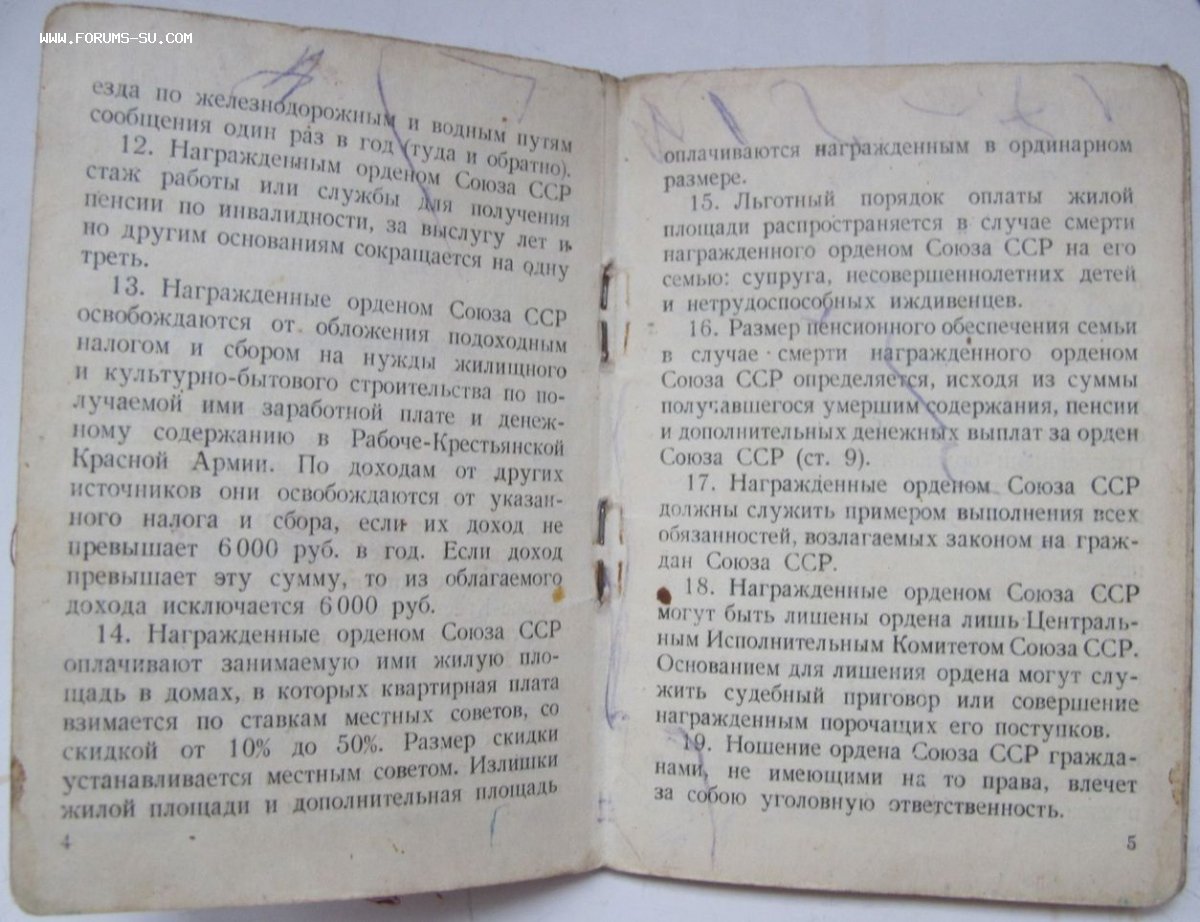 WWW.FORUMS-SU.COM
езда по железнодорожным и водным путям
сообщения один раз в год (туда и обратно).
12. Награжденным орденом Союза ССР
стаж работы или службы для получения
пенсии по инвалидности, за выслугу лет и
по другим основаниям сокращается на одну
треть.
13. Награжденные орденом Союза ССР
освобождаются от обложения подоходным
налогом и сбором на нужды жилищного
и культурно-бытового строительства по по-
лучаемой ими заработной плате и денеж-
ному содержанию в Рабоче-Крестьянской
Красной Армии. По доходам от других
источников они освобождаются от указан-
ного налога и сбора, если их доход не
превышает 6 000 руб. в год. Если доход
превышает эту сумму, то из облагаемого
дохода исключается 6 000 руб.
14. Награжденные орденом Союза ССР
оплачивают занимаемую ими жилую пло-
щадь в домах, в которых квартирная плата
взимается по ставкам местных советов, со
скидкой от 10% до 50%. Размер скидки
устанавливается местным советом. Излишки
жилой площади и дополнительная площадь
4
оплачиваются награжденным в ординарном
размере.
15. Льготный порядок оплаты жилой
площади распространяется в случае смерти
награжденного орденом Союза ССР на его
семью: супруга, несовершеннолетних детей
и нетрудоспособных иждивенцев.
16. Размер пенсионного обеспечения семьи
в случае смерти награжденного орденом
Союза ССР определяется, исходя из суммы
получавшегося умершим содержания, пенсии
и дополнительных денежных выплат за орден
Союза ССР (ст. 9).
17. Награжденные орденом Союза ССР
должны служить примером выполнения всех
обязанностей, возлагаемых законом на граж-
дан Союза ССР.
18. Награжденные орденом Союза ССР
могут быть лишены ордена лишь Централь-
ным Исполнительным Комитетом Союза ССР.
Основанием для лишения ордена могут слу-
жить судебный приговор или совершение
награжденным порочащих его поступков.
19. Ношение ордена Союза ССР гражда-
нами, не имеющими на то права, влечет
за собою уголовную ответственность.
5